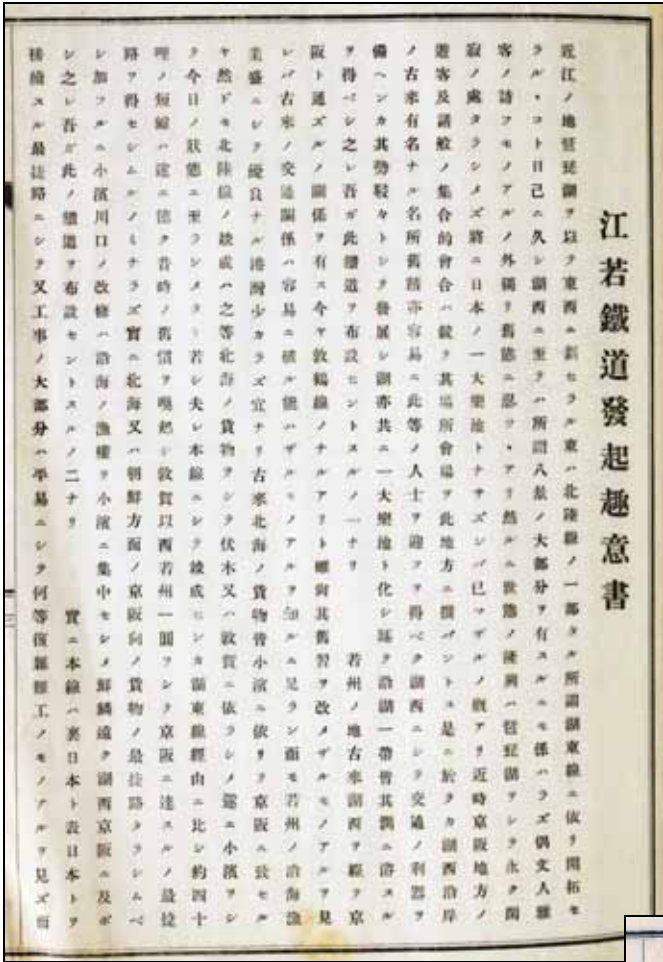 江若鐵道發起趣意書
近江ノ地琵琶湖ヲ以テ東西ニ劃セラル東ハ北陸線ノ一部タル所謂湖東線ニ依リ開拓セ
ラル・コト日已ニ久シ湖西ニ至テハ所謂八景ノ大部分ヲ有スルニモ係ハラズ偶文人雅
客ノ訪フモノアルノ外獨リ舊態ニ忍ヒ・アリ然ルニ世態ノ隆興ハ琵琶湖ヲシテ永ク閑
寂ノ處タラシメズ將ニ日本ノ一大樂地トナサズンバ已マザルノ槪アリ近時京阪地方ノ
遊客及諸般ノ集合的會合ハ競テ其場所會場ヲ此地方ニ撰バントス是ニ於テカ湖西沿岸
ノ古來有名ナル名所舊蹟亦容易ニ此等ノ人士ヲ迎フヲ得ベク湖西ニシテ交通ノ利器ヲ
備ヘンカ其勢駸々トシテ發展シ湖亦共ニ一大樂地ト化シ延テ沿湖一帶皆其潤ニ浴スル
ヲ得ベシ之レ吾ガ此鐵道ヲ布設セントスルノ一ナリ 若州ノ地古來湖西ヲ經テ京
阪ト通ズルノ關係ヲ有ス今ヤ敦鶴線ノナルアリト雖尙其舊習ヲ改メザルモノアルヲ見
レバ古來ノ交通關係ハ容易ニ破ル能ハザルモノアルヲ知ルニ足ラン而モ若州ノ沿海漁
業盛ニシテ優良ナル港灣少カラズ宜ナリ古來北海ノ貨物皆小濱ニ依リテ京阪ニ致セル
ヤ然ドモ北陸線ノ竣成ハ之等北海ノ貨物ヲシテ伏木又ハ敦賀ニ依ラシメ遂ニ小濱ヲシ
テ今日ノ狀態ニ至ランメタリ若シ夫レ本線ニシテ竣成センカ湖東線經由ニ比シ約四十
哩ノ短縮ハ遂ニ能ク昔時ノ舊慣ヲ喚起シ敦賀以西若州一圓ヲシテ京阪ニ達スルノ最捷
路ヲ得セシムルノミナラズ實ニ北海又ハ朝鮮方面ノ京阪向ノ貨物ノ最捷路タラシムベ
シ加フルニ小濱川口ノ改修ハ沿海ノ漁權ヲ小濱ニ集中セシメ鮮鱗遠ク湖西京阪ニ及ボ
シ之レ吾ガ此ノ鐵道ヲ布設セントスルノ二ナリ 實ニ本線ハ裏日本ト表日本トヲ
接續スル最捷路ニシテ又工事ノ大部分ハ平易ニシテ何等復雜難工ノモノアルヲ見ズ而